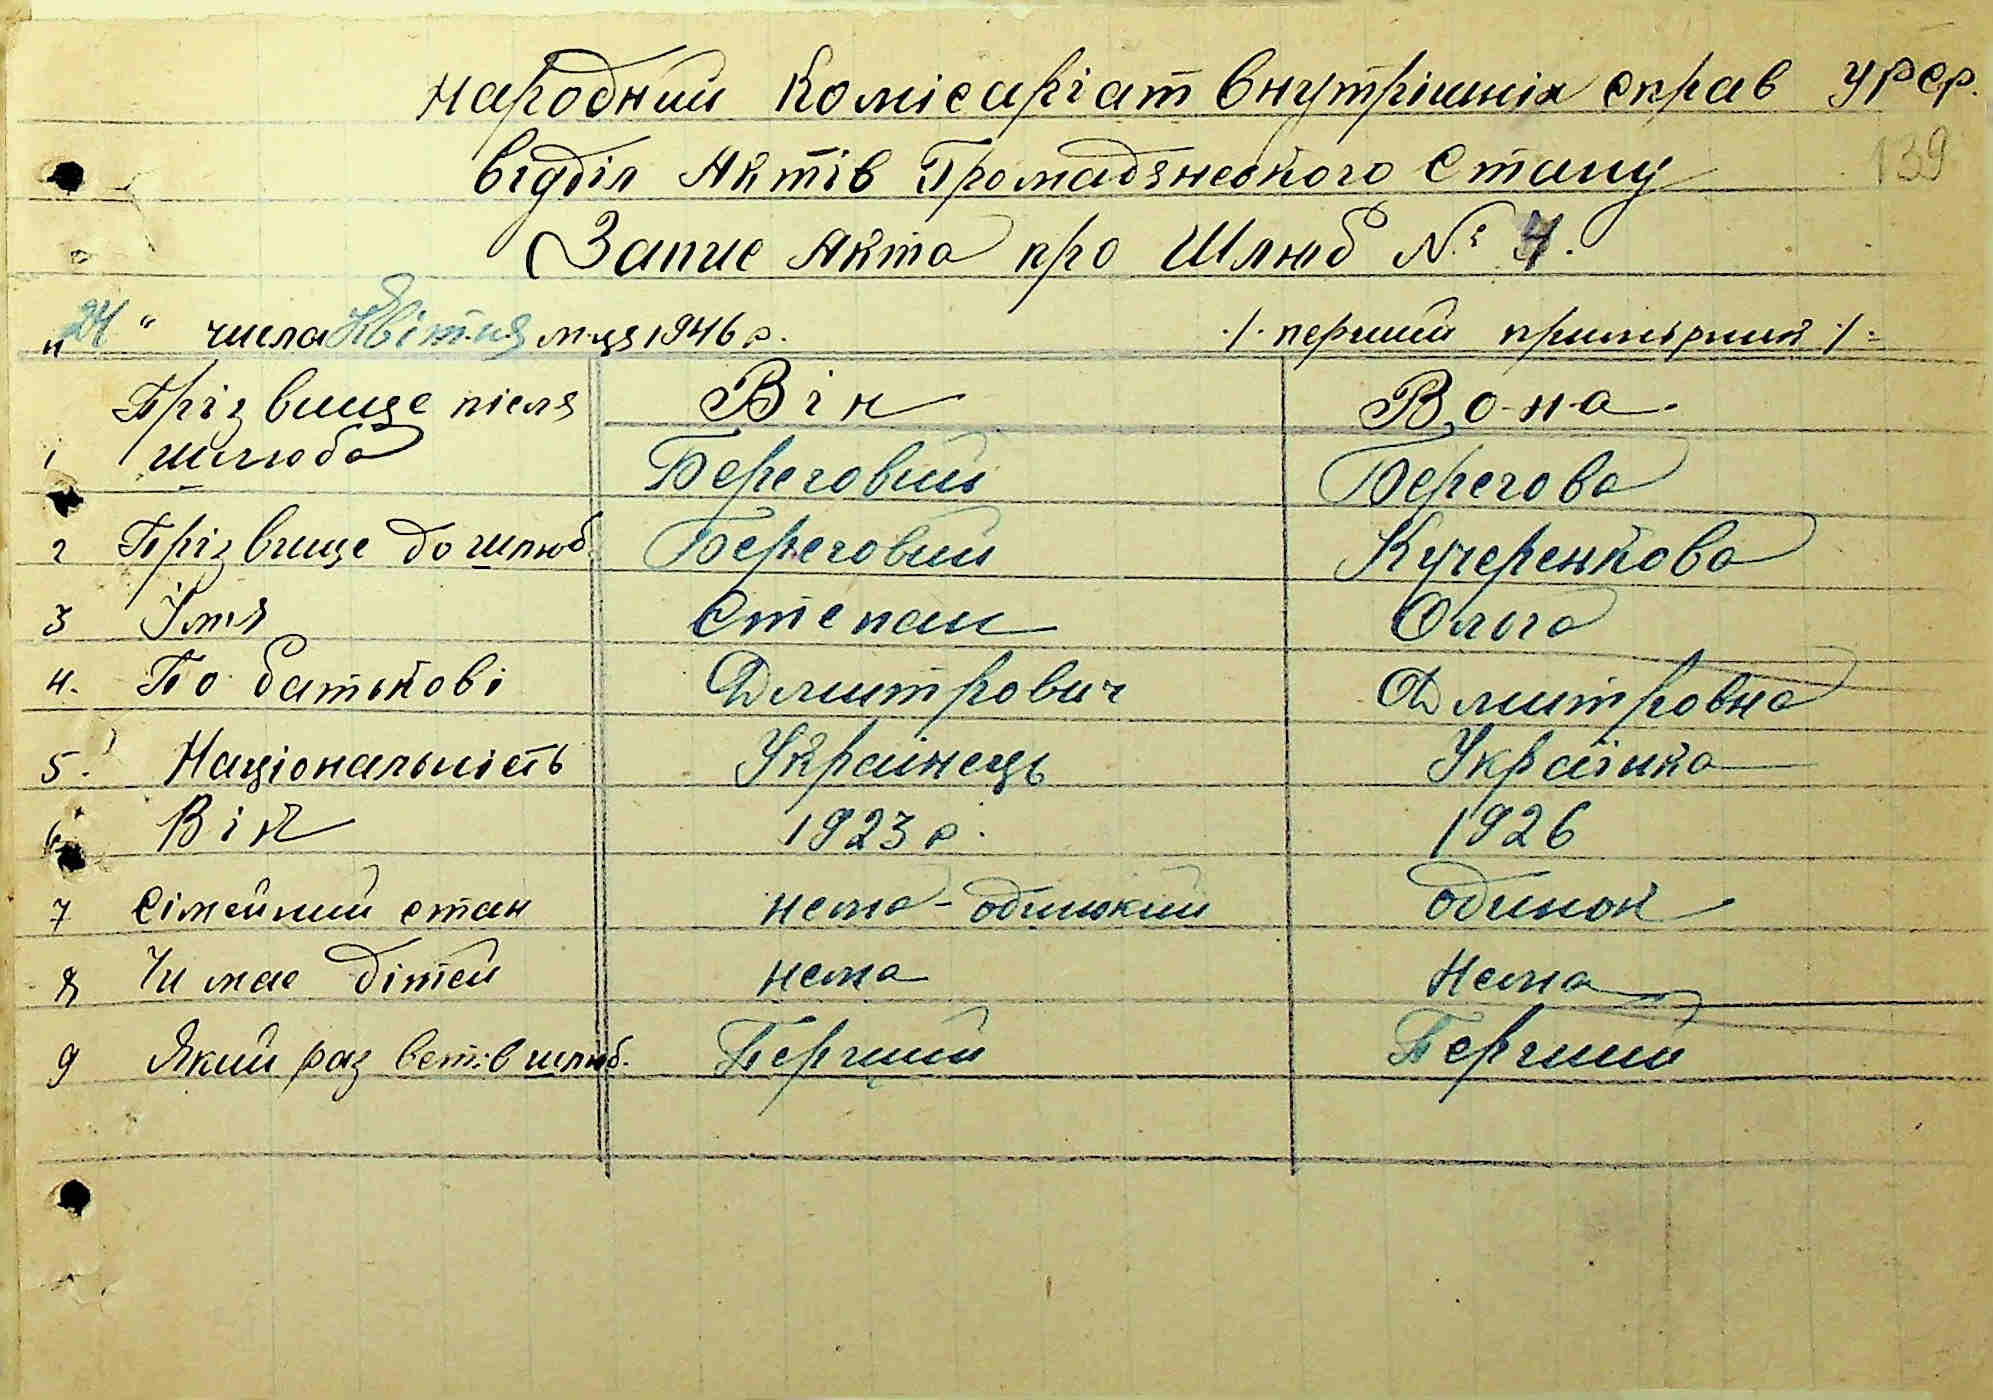 Народний Комісаріат Внутрішніх справ УРСР.
139
Відділ Актів Громадянського Стану
Запис Акта про Шлюб № 4.
"24" числа Квітня м-ця 1946 р. ./. перший примірний ./.
Прізвище після шлюба Він Вона
1 Береговий Берегова
2 Прізвище до шлюб. Береговий Кучеренкова
3 Імя Степан Ольга
4. По батькові Дмитрович Дмитровна
5. Національність Українець Українка
6 Вік 1923 р. 1926
7 Сімейний стан нема - одинокий одинок
8 Чи має дітей нема нема
9 Який раз вст. в шлюб. Перший Перший